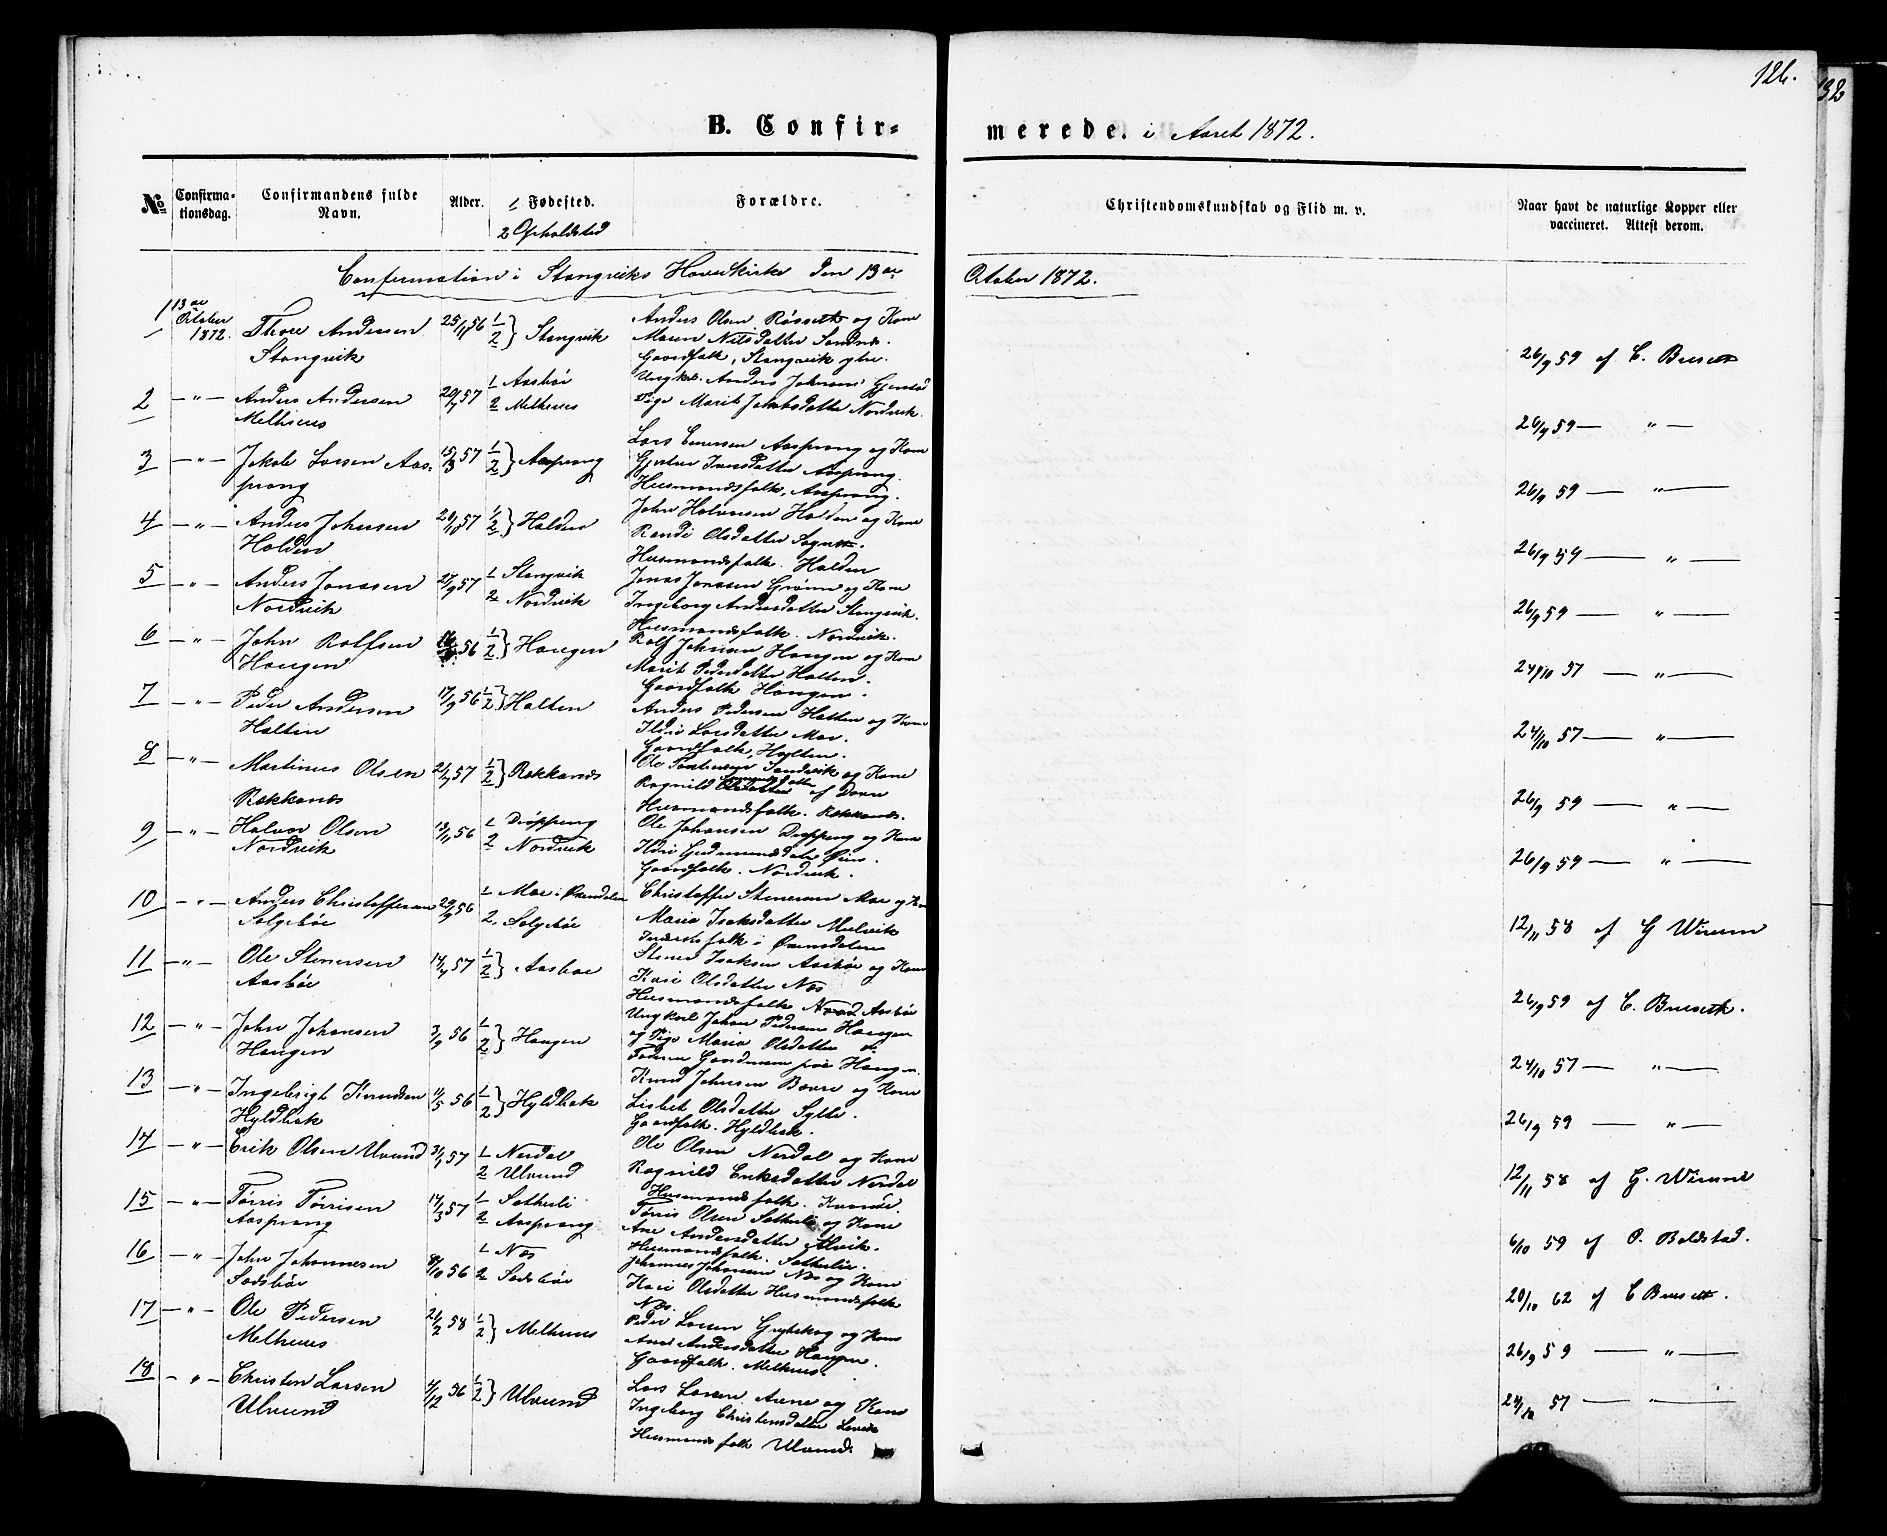 126.
132
B. Confir-
merede. i Aaret 1872.
No
Confirma-
tionsdag.
Confirmandens fulde
Navn.
Alder.
1 Fødested.
2 Opholdsted
Forældre.
Christendomskundskab og Flid m. v.
Naar havt de naturlige Kopper eller
vaccineret. Attest derom.
Confirmation i Stangviks Hovedkirke den 13de
October 1872.
1 13de October 1872. Thore Andersen Stangvik 25/11 56 1/2} Stangvik
Anders Olsen Røsseth og Kone
Maren Nilsdatter
Gaardfolk, Stangvik
26/9 59 af C. Bruseth
2 — " — Anders Andersen Melhuus 57 1 Aasbøe 2 Melhuus
Ungkarl Anders Johnsen
Pige Marit Jakobsdatter Nordvik.
26/9 59 — " —
3 — " — Jakob Larsen Aasprong 15/3 57 1/2} Aasprong
Lars Aasprong og Kone
Iversdatter Aasprong.
Husmandsfolk, Aasprong.
26/9 59 — " —
4 — " — Anders Johnsen Halden 57 1/2} Halden
John Halvorsen Halden og Kone
Randi Olsdatter
Husmandsfolk. Halden
26/9 59 — " —
5 — " — Anders Jonassen Nordvik 57 1 Stangvik 2 Nordvik
Jonas Jonassen Grønnes og Kone
Ingeborg Andersdatter Stangvik.
Husmandsfolk. Nordvik.
26/9 59 — " —
6 — " — John Rolfsen Haugen 56 1/2} Haugen
Rolf Johnsen Haugen og Kone
Marit Pedersdatter Halten.
Gaardfolk Haugen.
24/10 57 — " —
7 — " — Peder Andersen Halten 17/9 56 1/2} Halten
Anders Pedersen Halten og Kone
Ildri Larsdatter Moe.
Gaardfolk, Halten.
24/10 57 — " —
8 — " — Martinus Olsen Røkkanes 57 1/2} Røkkanes
Ole Sandvik og Kone
Ragnild af Dovre
Husmandsfolk. Røkkanes.
26/9 59 — " —
9 — " — Halvor Olsen Nordvik 13/11 56 1 Drøpping 2 Nordvik
Ole Johansen Drøpping og Kone
Ildri Gudmundsdatter
Gaardfolk. Nordvik.
26/9 59 — " —
10 — " — Anders Christoffersen Solgjbøe 29/9 56 1 Moe i Øxendalen 2 Solgjbøe
Christoffer Stenersen Moe og Kone
Maria Isaksdatter Mulvik
Inderstfolk i Øxendalen
12/11 58 af G Wirum
11 — " — Ole Stenersen Aasbøe 57 1/2} Aasboe
Stener Isaksen Aasbøe og Kone
Kari Olsdatter Næs
Husmandsfolk Aasbøe
26/9 59 af C. Bruseth.
12 — " — John Johansen Haugen 3/9 56 1/2} Haugen
Ungkarl Johan Pedersen Haugen
og Pige Maria Olsdatter
Gaardmand Haugen.
24/10 57 — " —
13 — " — Ingebrigt Knudsen Hyldbak 11/5 56 1/2} Hyldbak
Knud Johnsen Bøvre og Kone
Lisbet Olsdatter Sylte.
Gaardfolk. Hyldbak.
26/9 59 — " —
14 — " — Erik Olsen Ulvund 57 1 Nerdal 2 Ulvund
Ole Olsen Nerdal og Kone
Ragnild Eriksdatter Nerdal
Husmandsfolk. Kvande.
12/11 58 af G. Wirum
15 — " — Tørris Tørrisen Aasprong 14/3 57 1 Sætherli 2 Aasprong
Tørris Olsen Sætherli og Kone
Ane Andersdatter Alvik.
Husmandsfolk. Sætherlie.
6/10 59 af O. Boldstad.
16 — " — John Johannesen Sødsbøe 8/10 56 1 Næs 2 Sødsbøe
Johannes Johansen Næs og Kone
Kari Olsdatter Husmandsfolk
Næs.
20/10 62 af C Bruseth.
17 — " — Ole Pedersen Melhuus 21/2 58 1/2} Melhuus
Peder Larsen og Kone
Ane Andersdatter Haugen.
Gaardfolk. Melhuus.
26/9 59 — " —
18 — " — Christen Larsen Ulvund 4/12 56 1/2} Ulvund
Lars Larsen og Kone
Ingeborg Christensdatter
Husmandsfolk Ulvund.
24/10 57 — " —